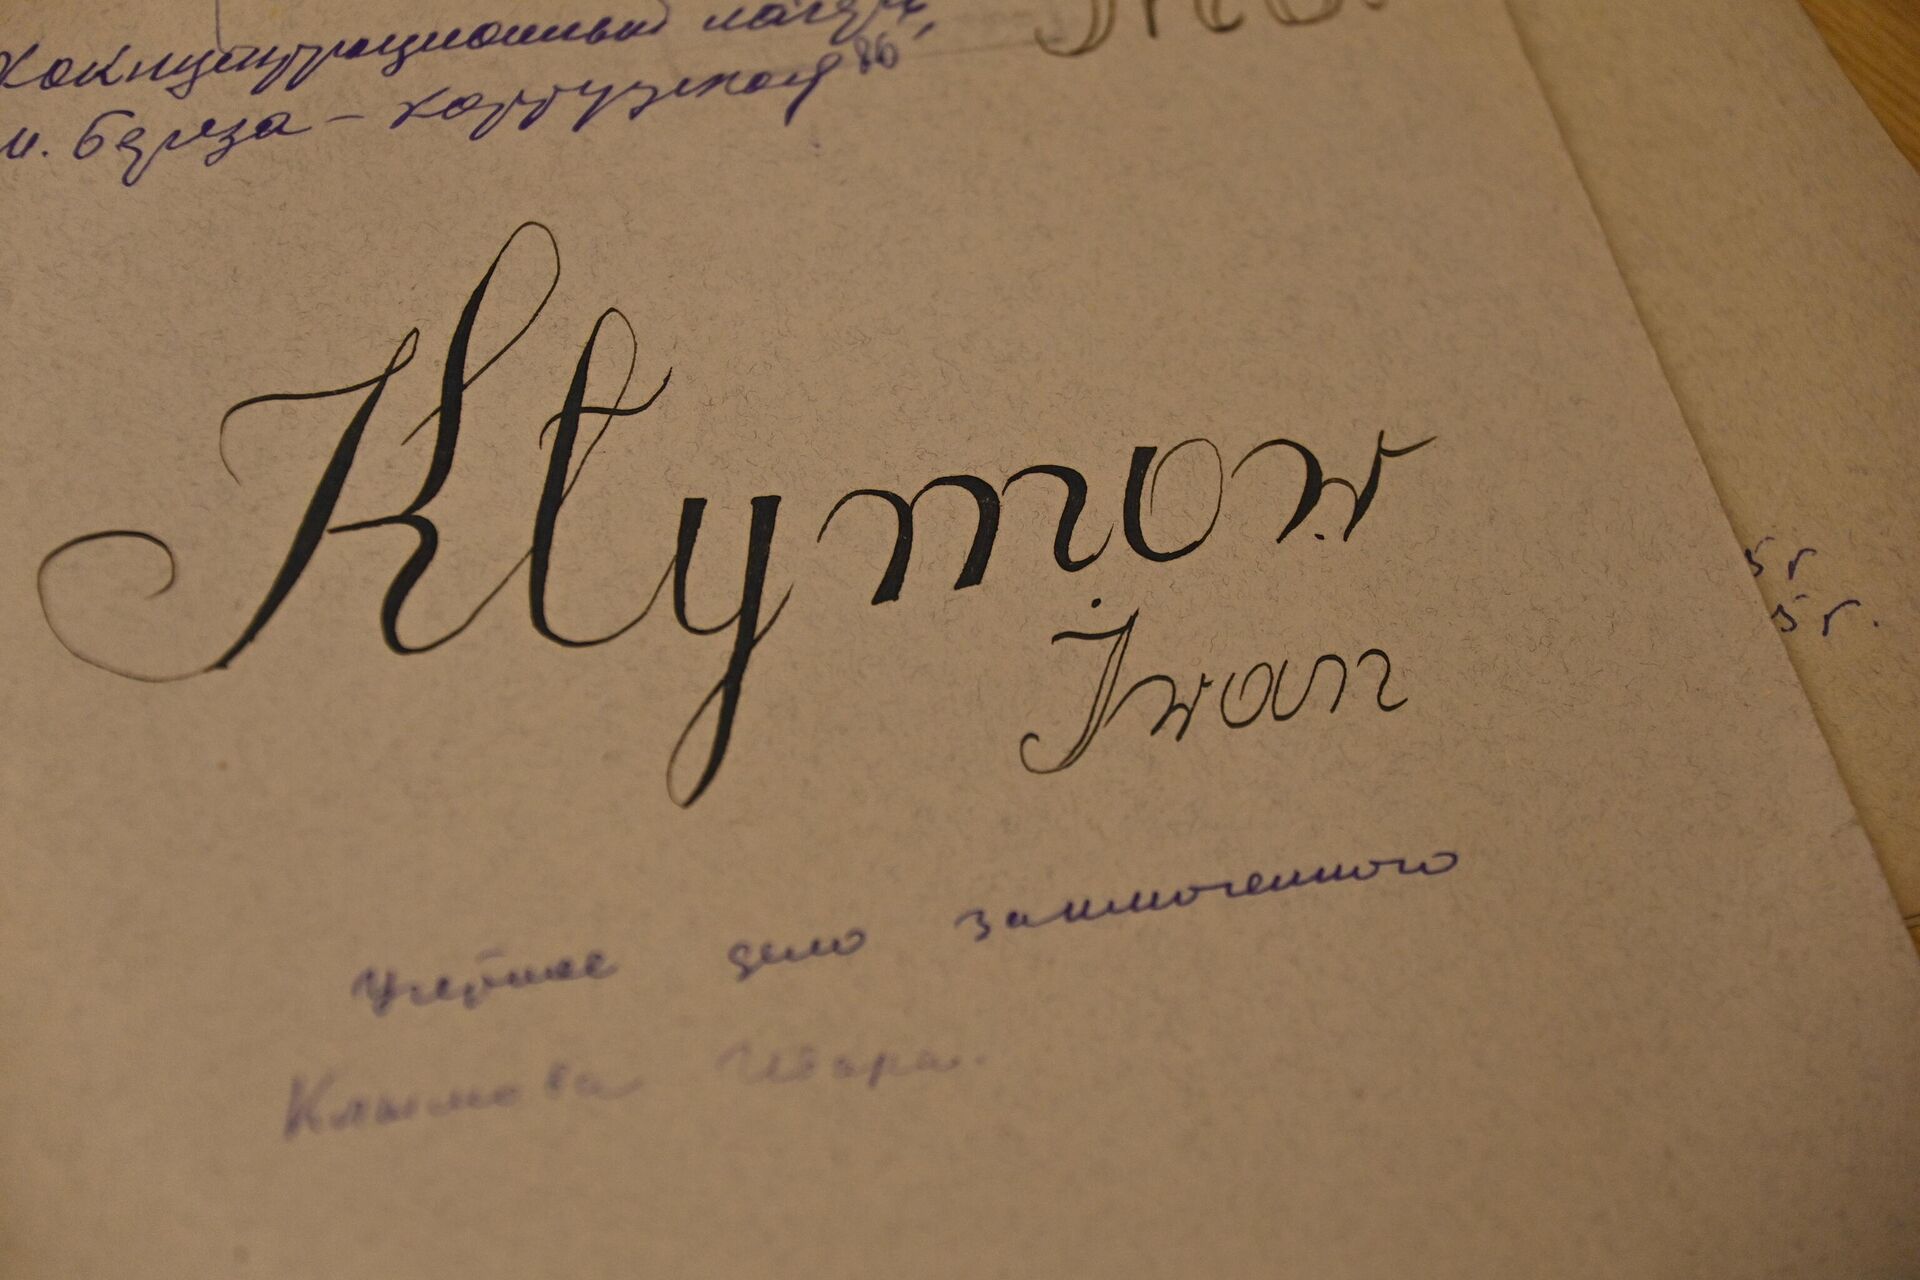 Концентрационный лагерь
м. Береза - Картузская
Kłymow
Iwan
Учетное дело заключенного
Клымова Ивана.
5 г
5 г.